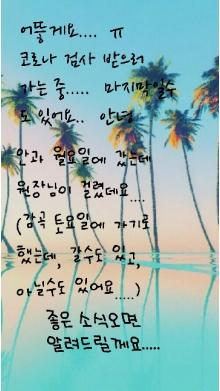 어뚷게요.... ㅠ
코로나 검사 받으러
가는 중..... 마지막일수
도 있어요.. 안녕
안과 월요일에 갔는데
원장님이 걸렸데요....
(감곡 토요일에 가기로
했는데, 갈수도 있고,
아닐수도 있어요.....)
좋은 소식오면
알려드릴께요.....